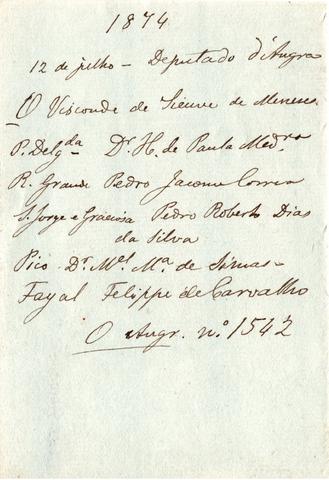 1874
12 de julho - Deputado d'Angra
O Visconde de Sieuve de Menezes
P. Delgda Dr. H. de Paula Medros
R. Grande Pedro Jacome Correia
S. Jorge e Graciosa Pedro Roberto Dias
da Silva
Pico Dr. Mel Ma. de Simas -
Fayal Felippe de Carvalho
O Angr. n.º 1542